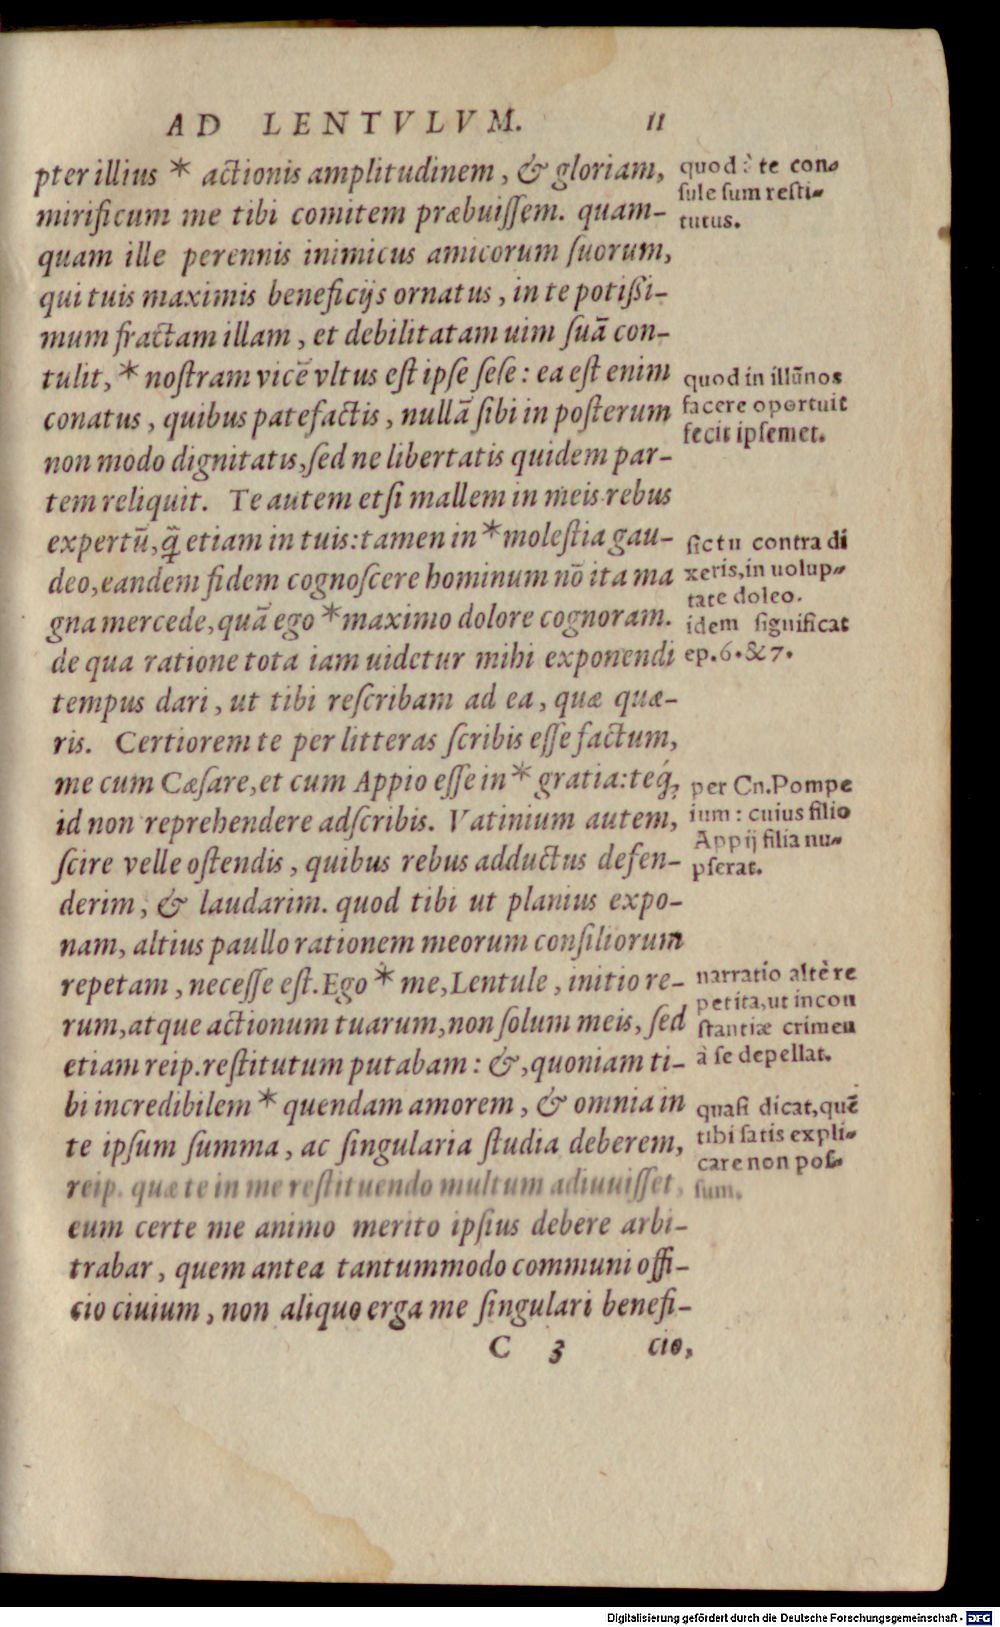 AD LENTVLVM. 11
pter illius * actionis amplitudinem, & gloriam,
mirificum me tibi comitem præbuissem. quam-
quam ille perennis inimicus amicorum suorum,
qui tuis maximis beneficijs ornatus, in te potißi-
mum fractam illam, et debilitatam uim suā con-
tulit, * nostram vicē vltus est ipse sese: ea est enim
conatus, quibus patefactis, nullā sibi in posterum
non modo dignitatis, sed ne libertatis quidem par-
tem reliquit. Te autem etsi mallem in meis rebus
expertū, q̄ etiam in tuis: tamen in * molestia gau-
deo, eandem fidem cognoscere hominum nō ita ma
gna mercede, quā ego * maximo dolore cognoram.
de qua ratione tota iam uidetur mihi exponendi
tempus dari, ut tibi rescribam ad ea, quæ quæ-
ris. Certiorem te per litteras scribis esse factum,
me cum Cæsare, et cum Appio esse in * gratia: teq́;
id non reprehendere adscribis. Vatinium autem,
scire velle ostendis, quibus rebus adductus defen-
derim, & laudarim. quod tibi ut planius expo-
nam, altius paullo rationem meorum consiliorum
repetam, necesse est. Ego * me, Lentule, initio re-
rum, atque actionum tuarum, non solum meis, sed
etiam reip. restitutum putabam: &, quoniam ti-
bi incredibilem * quendam amorem, & omnia in
te ipsum summa, ac singularia studia deberem,
reip. quæ te in me restituendo multum adiuuisset,
eum certe me animo merito ipsius debere arbi-
trabar, quem antea tantummodo communi offi-
cio ciuium, non aliquo erga me singulari benefi-
C 3 cio,
quod: te con-
sule sum resti-
tutus.
quod in illū nos
facere oportuit
fecit ipsemet.
sic tu contra di
xeris, in uolup-
tate doleo.
idem significat
ep. 6. & 7.
per Cn. Pompe
ium: cuius filio
Appij filia nu-
pserat.
narratio altè re
petita, ut incon
stantiæ crimen
à se depellat.
quasi dicat, quē
tibi satis expli-
care non pos-
sum.
Digitalisierung gefördert durch die Deutsche Forschungsgemeinschaft - DFG